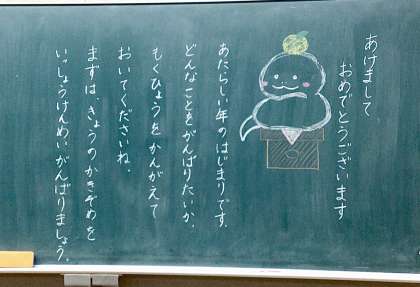 あけまして
おめでとうございます
あたらしい年のはじまりです。
どんなことをがんばりたいか、
もくひょうをかんがえて
おいてくださいね。
まずは、きょうのかきぞめを
いっしょうけんめいがんばりましょう。